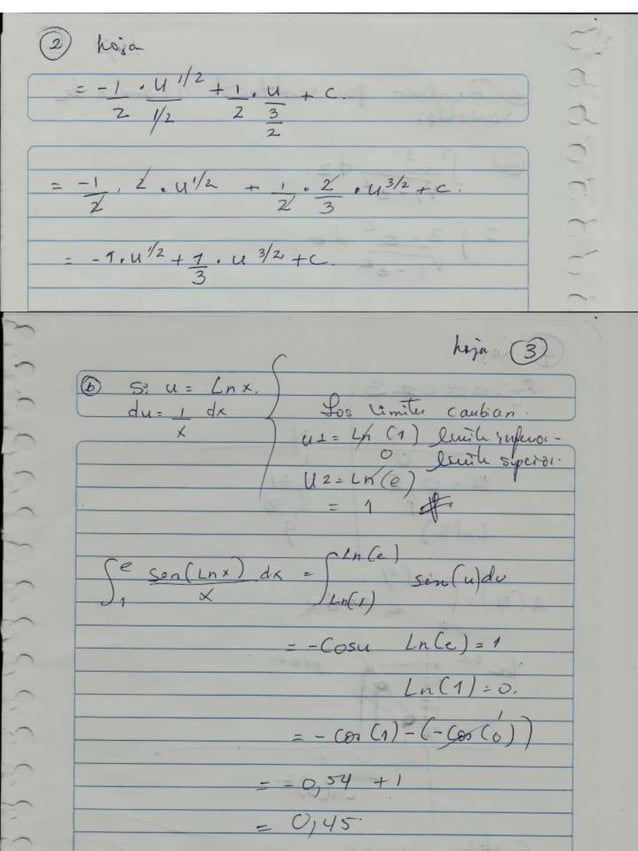 2 hoja
= -1/2 · u^1/2 / 1/2 + 1/2 · u / 3/2 + c.
= -1/2 · 2 · u^1/2 + 1/2 · 2/3 · u^3/2 + c.
= -1 · u^1/2 + 1/3 · u^3/2 + c.
hoja 3
b Si u = Lnx.
du = 1/x dx
Los limites cambian.
u1 = Ln (1) limite inferior
0 limite superior.
U2 = Ln(e)
= 1
∫_1^e sen(Lnx)/x dx = ∫_Ln(1)^Ln(e) sin(u)du
= -Cosu Ln(e) = 1
Ln(1) = 0.
= -cos(1) - (-cos(0)) 1
= -0,54 + 1
= 0,45.